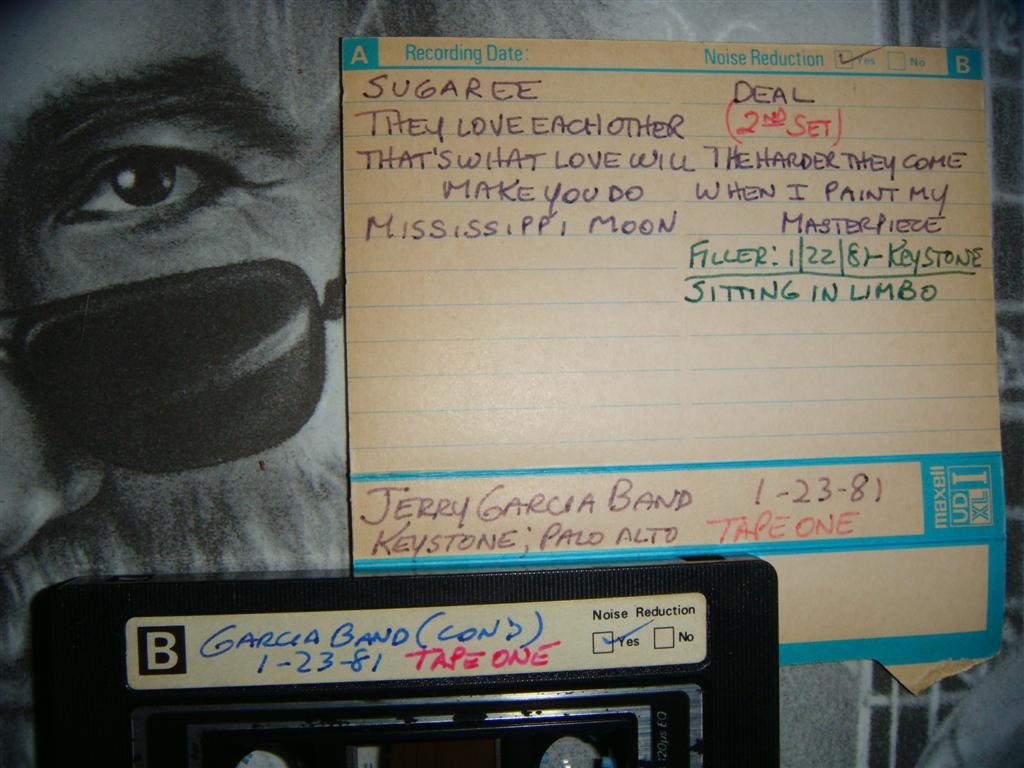 A Recording Date: Noise Reduction Yes No B
SUGAREE
THEY LOVE EACH OTHER
THAT'S WHAT LOVE WILL
MAKE YOU DO
MISSISSIPPI MOON
DEAL
(2ND SET)
THE HARDER THEY COME
WHEN I PAINT MY
MASTERPIECE
FILLER: 1/22/81-KEYSTONE
SITTING IN LIMBO
JERRY GARCIA BAND 1-23-81
KEYSTONE; PALO ALTO TAPE ONE
maxell
UD
XL I
B
GARCIA BAND (CON'D)
1-23-81 TAPE ONE
Noise Reduction
Yes No
120µs EQ